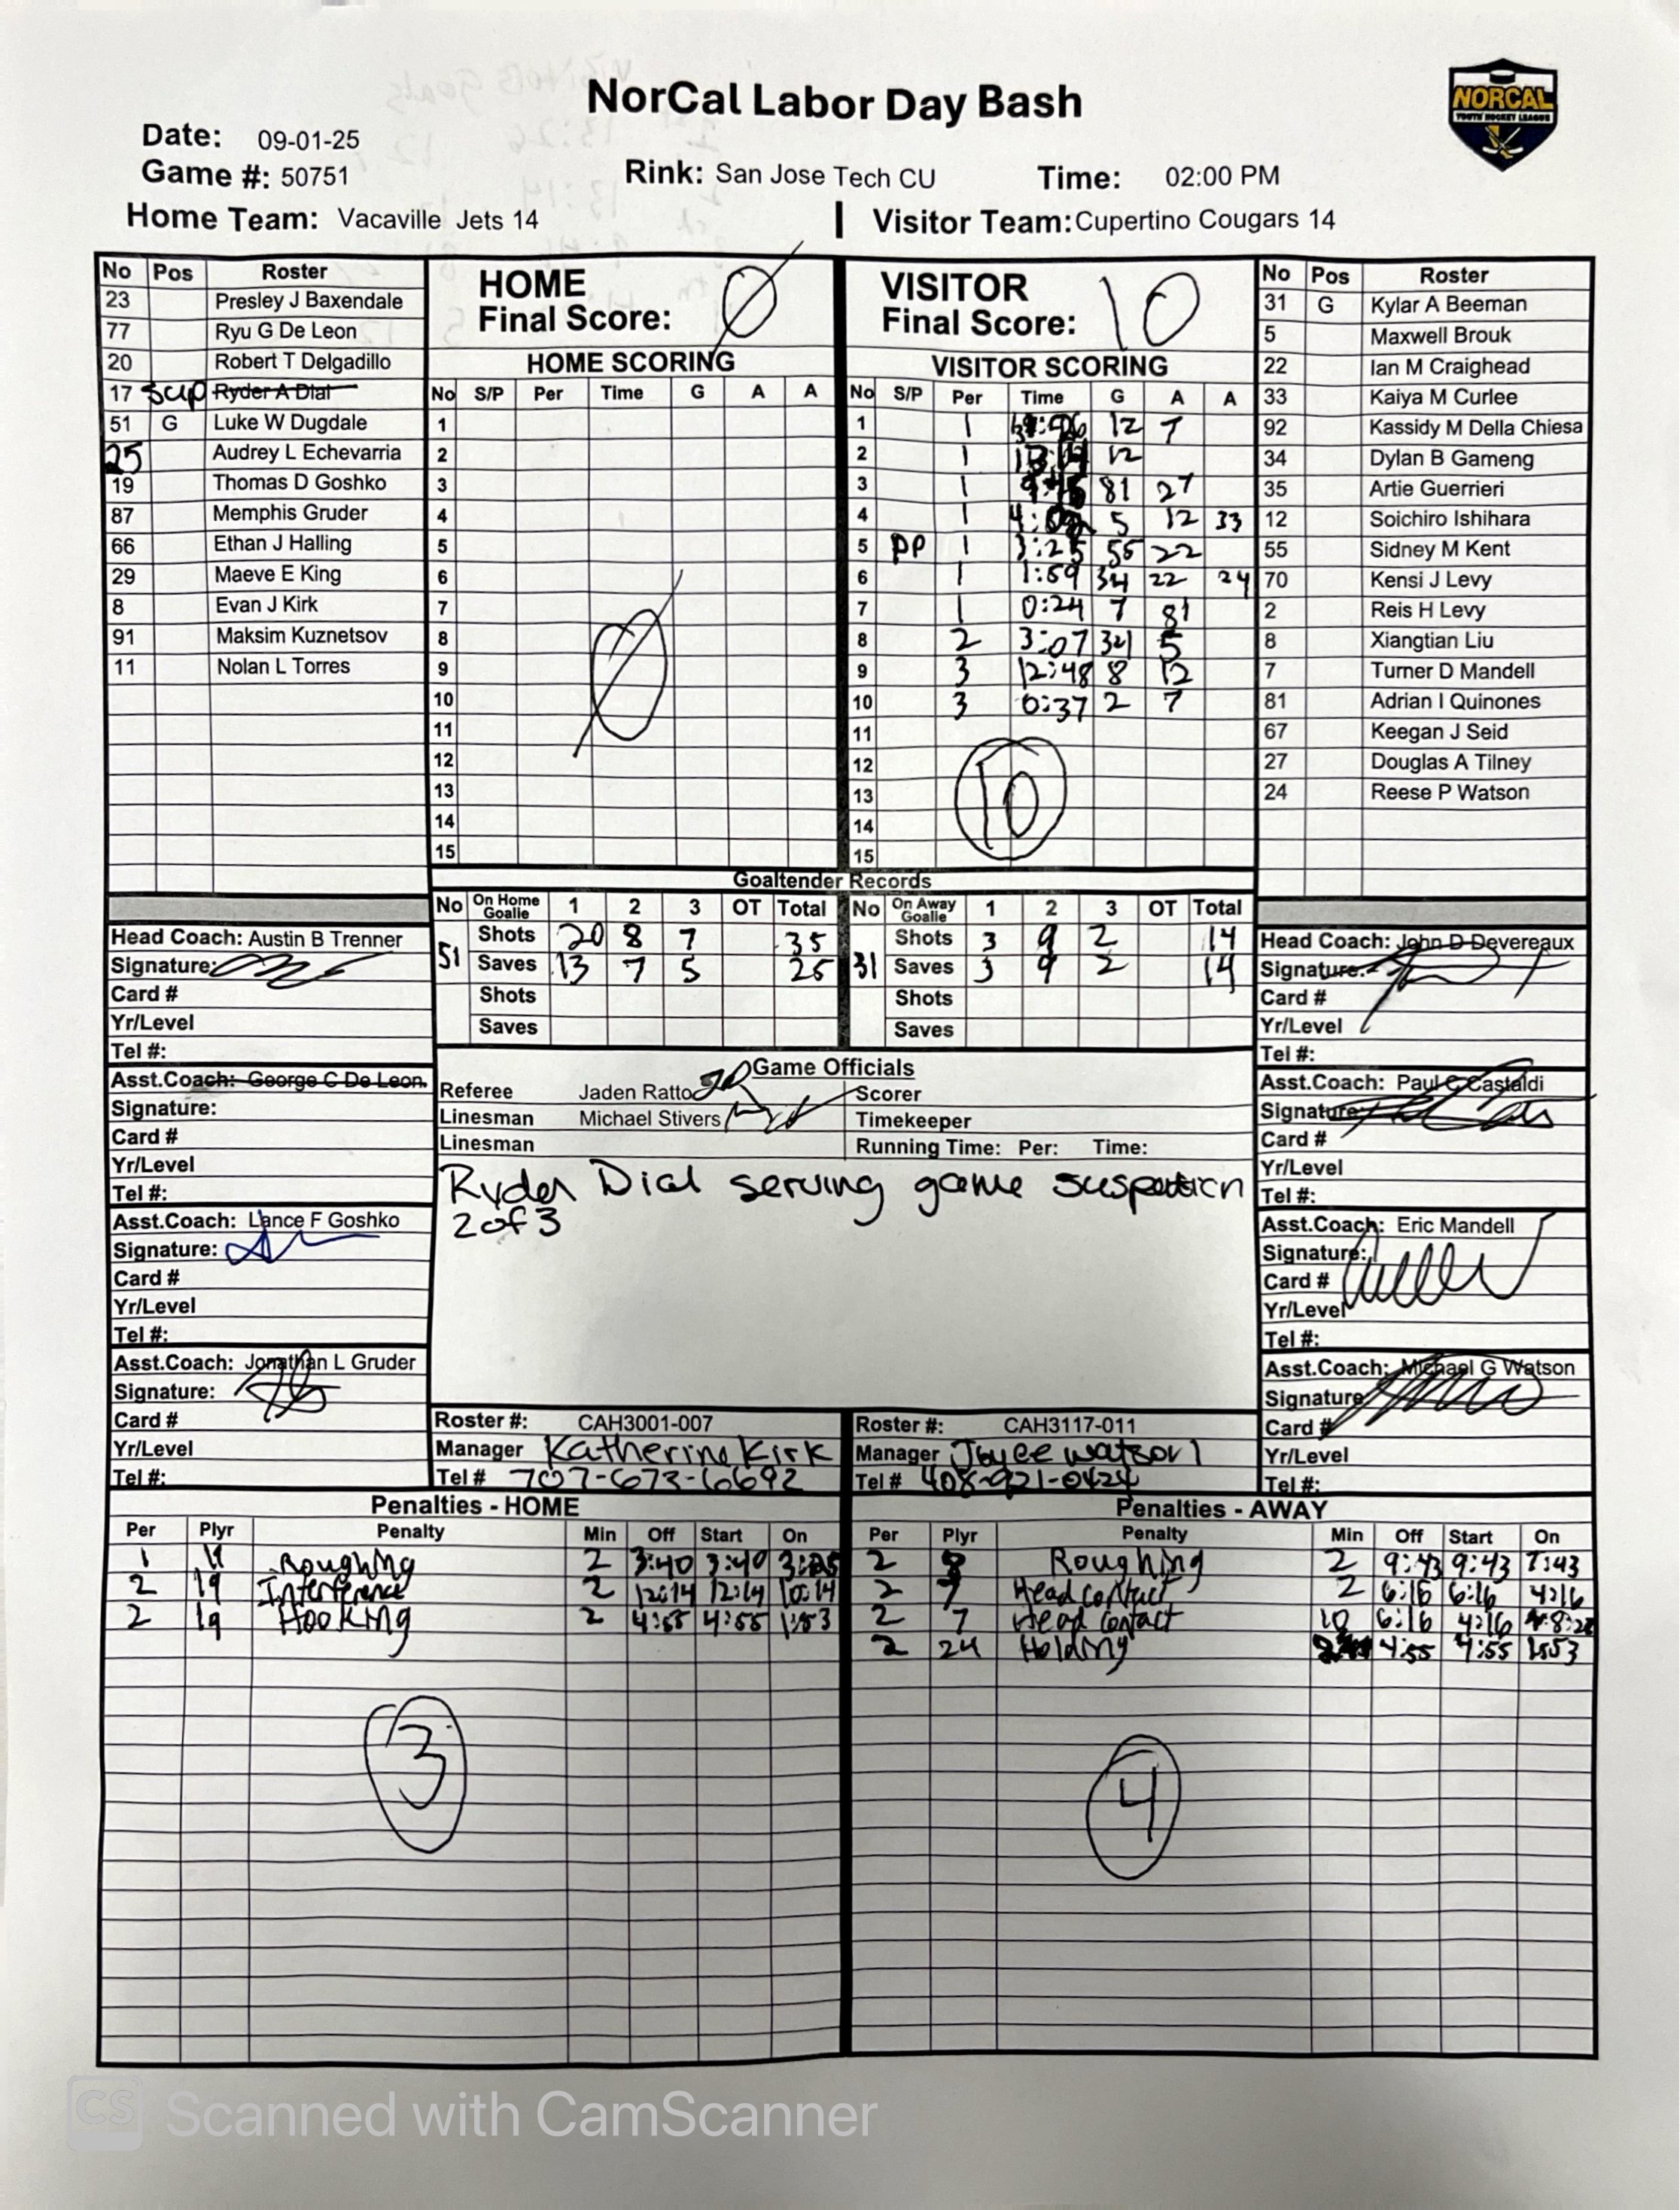 NorCal Labor Day Bash
NORCAL
YOUTH HOCKEY LEAGUE
Date: 09-01-25
Game #: 50751
Rink: San Jose Tech CU
Time: 02:00 PM
Home Team: Vacaville Jets 14
Visitor Team: Cupertino Cougars 14
No Pos Roster
23 Presley J Baxendale
77 Ryu G De Leon
20 Robert T Delgadillo
17 Ryder A Dial
51 G Luke W Dugdale
25 Audrey L Echevarria
19 Thomas D Goshko
87 Memphis Gruder
66 Ethan J Halling
29 Maeve E King
8 Evan J Kirk
91 Maksim Kuznetsov
11 Nolan L Torres
HOME
Final Score: 0
HOME SCORING
No S/P Per Time G A A
1
2
3
4
5
6
7
8
9
10
11
12
13
14
15
0
VISITOR
Final Score: 10
VISITOR SCORING
No S/P Per Time G A A
1 1 12 7
2 1 12
3 1 81 27
4 1 5 12 33
5 PP 1 3:25 55 22
6 1 1:59 34 22 24
7 1 0:24 7 81
8 2 3:07 34 5
9 3 12:48 8 12
10 3 0:37 2 7
11
12
13
14
15
10
No Pos Roster
31 G Kylar A Beeman
5 Maxwell Brouk
22 Ian M Craighead
33 Kaiya M Curlee
92 Kassidy M Della Chiesa
34 Dylan B Gameng
35 Artie Guerrieri
12 Soichiro Ishihara
55 Sidney M Kent
70 Kensi J Levy
2 Reis H Levy
8 Xiangtian Liu
7 Turner D Mandell
81 Adrian I Quinones
67 Keegan J Seid
27 Douglas A Tilney
24 Reese P Watson
Goaltender Records
No On Home Goalie 1 2 3 OT Total
51 Shots 20 8 7 35
Saves 13 7 5 25
Shots
Saves
No On Away Goalie 1 2 3 OT Total
31 Shots 3 9 2 14
Saves 3 9 2 14
Shots
Saves
Head Coach: Austin B Trenner
Signature:
Card #
Yr/Level
Tel #:
Asst.Coach: George C De Leon
Signature:
Card #
Yr/Level
Tel #:
Asst.Coach: Lance F Goshko
Signature:
Card #
Yr/Level
Tel #:
Asst.Coach: Jonathan L Gruder
Signature:
Card #
Yr/Level
Tel #:
Game Officials
Referee Jaden Ratto
Linesman Michael Stivers
Linesman
Scorer
Timekeeper
Running Time: Per: Time:
Ryder Dial serving game suspension
2 of 3
Roster #: CAH3001-007
Manager Katherine Kirk
Tel # 707-673-6692
Roster #: CAH3117-011
Manager Joyce Watson
Tel # 408-921-0424
Head Coach: John D Devereaux
Signature:
Card #
Yr/Level
Tel #:
Asst.Coach: Paul C Castaldi
Signature:
Card #
Yr/Level
Tel #:
Asst.Coach: Eric Mandell
Signature:
Card #
Yr/Level
Tel #:
Asst.Coach: Michael G Watson
Signature
Card #
Yr/Level
Tel #:
Penalties - HOME
Per Plyr Penalty Min Off Start On
1 11 Roughing 2 3:40 3:40 3:25
2 19 Interference 2 12:14 12:14 10:14
2 19 Hooking 2 4:55 4:55 1:53
3
Penalties - AWAY
Per Plyr Penalty Min Off Start On
2 8 Roughing 2 9:43 9:43 7:43
2 7 Head contact 2 6:16 6:16 4:16
2 7 Head contact 10 6:16 4:16
2 24 Holding 4:55 4:55 1:53
4
CS Scanned with CamScanner